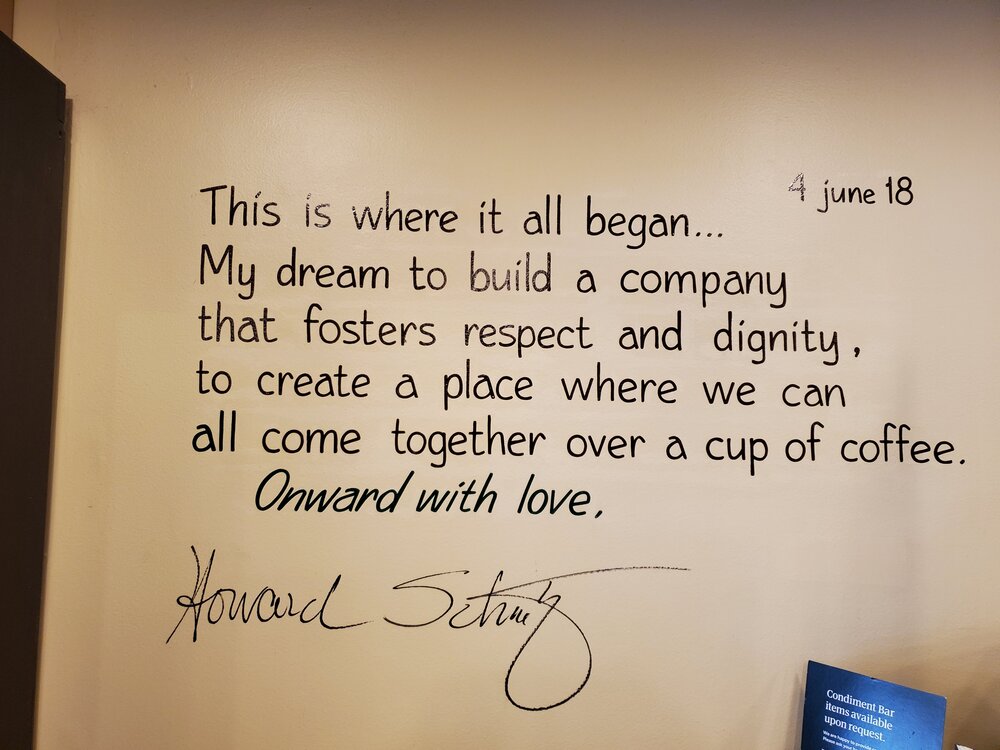 4 june 18
This is where it all began...
My dream to build a company
that fosters respect and dignity,
to create a place where we can
all come together over a cup of coffee.
Onward with love,
Howard Schultz
Condiment Bar
items available
upon request.
We are happy to provide
Please ask